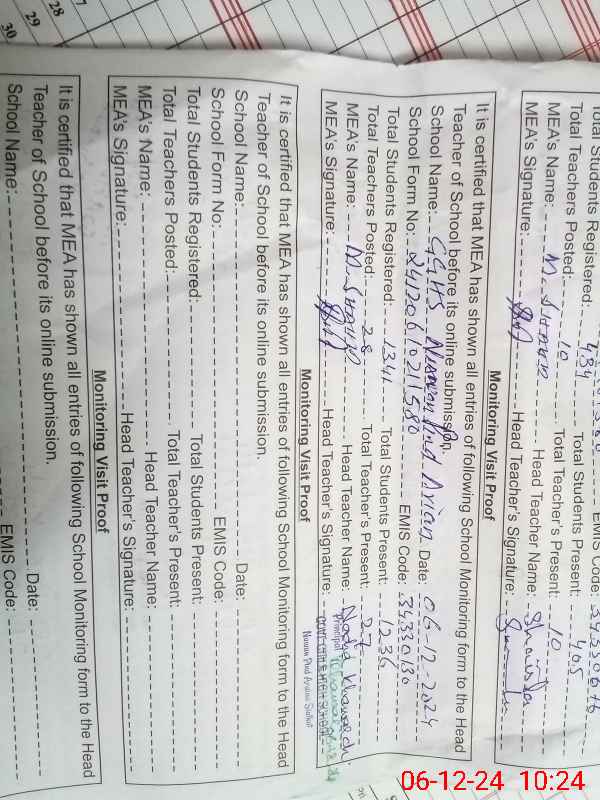 Total Students Registered: 434 Total Students Present: 405
Total Teachers Posted: 10 Total Teacher's Present: 10
MEA's Name: Head Teacher Name: Shaista
MEA's Signature: Head Teacher's Signature:
Monitoring Visit Proof
It is certified that MEA has shown all entries of following School Monitoring form to the Head
Teacher of School before its online submission.
School Name: GGHS Date: 06-12-2024
School Form No: EMIS Code: 34330130
Total Students Registered: 1341 Total Students Present: 1236
Total Teachers Posted: 28 Total Teacher's Present: 27
MEA's Name: Head Teacher Name:
MEA's Signature: Head Teacher's Signature:
Principal
Monitoring Visit Proof
It is certified that MEA has shown all entries of following School Monitoring form to the Head
Teacher of School before its online submission.
School Name: Date:
School Form No: EMIS Code:
Total Students Registered: Total Students Present:
Total Teachers Posted: Total Teacher's Present:
MEA's Name: Head Teacher Name:
MEA's Signature: Head Teacher's Signature:
Monitoring Visit Proof
It is certified that MEA has shown all entries of following School Monitoring form to the Head
Teacher of School before its online submission.
School Name: Date:
EMIS Code:
28
29
30
06-12-24 10:24